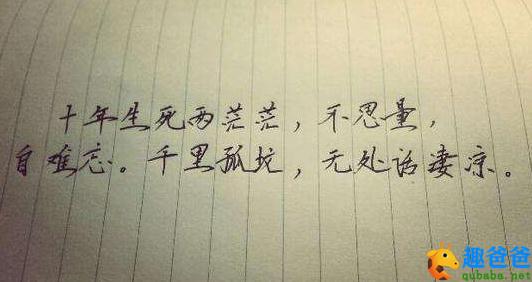 十年生死两茫茫，不思量，
自难忘。千里孤坟，无处话凄凉。
趣爸爸
qubaba.net